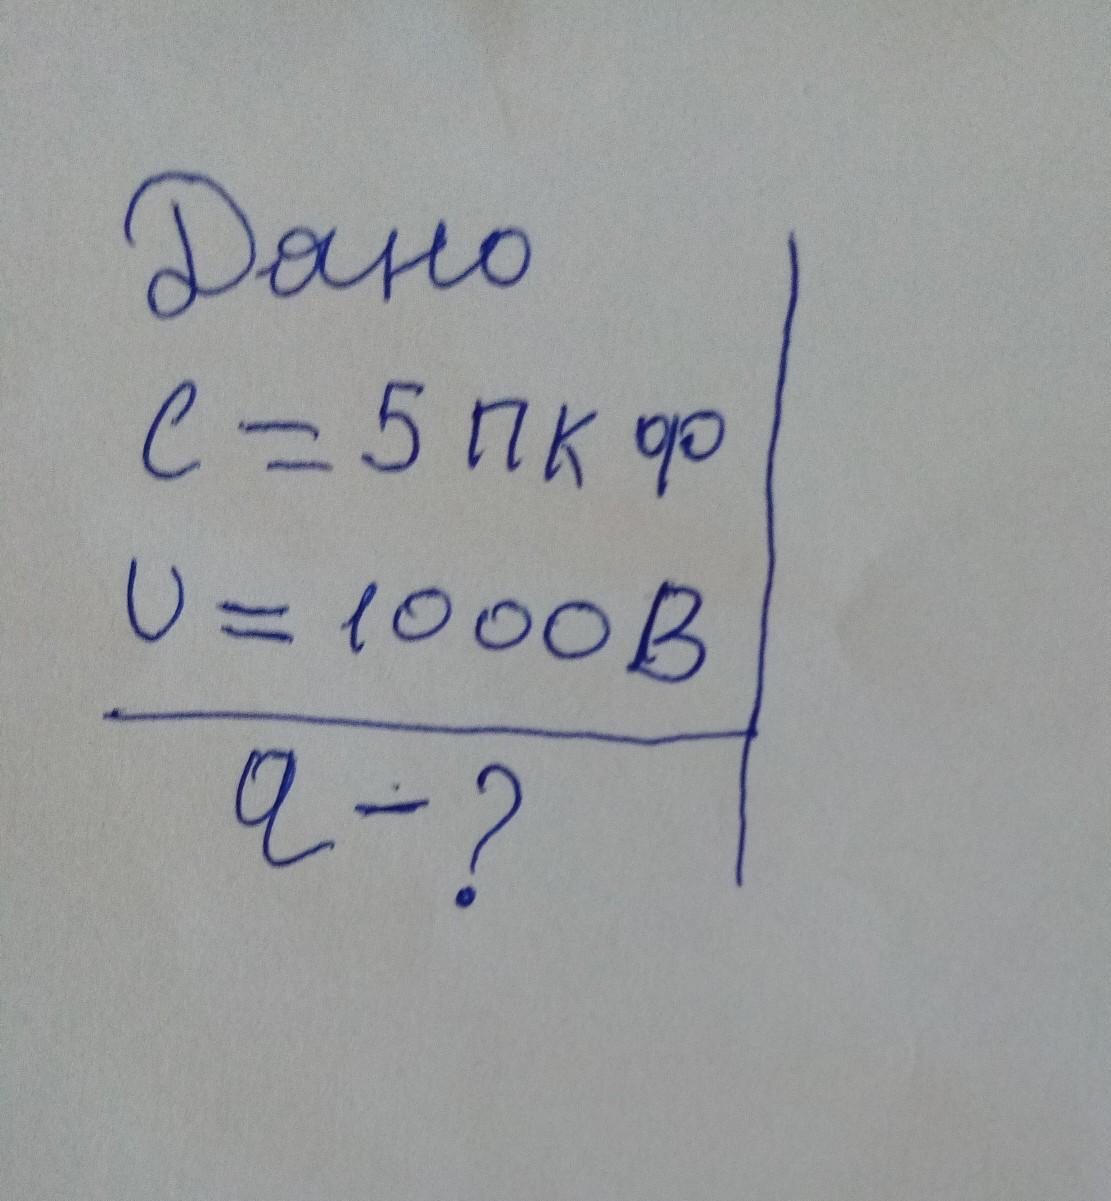 Дано
C = 5 пк ф
U = 1000 В
q - ?